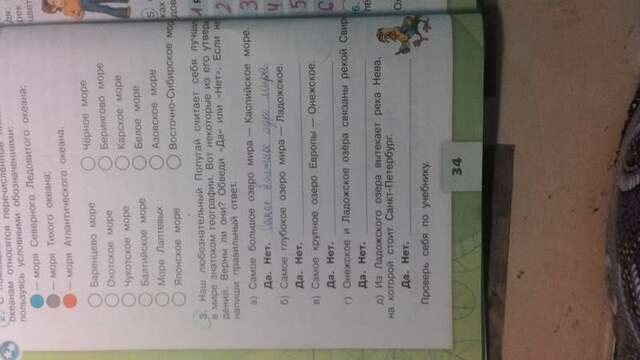 океанам относятся перечисленные
пользуясь условными обозначениями:
— моря Северного Ледовитого океана;
— моря Тихого океана;
— моря Атлантического океана.
Баренцево море
Чёрное море
Охотское море
Берингово море
Чукотское море
Карское море
Балтийское море
Белое море
Море Лаптевых
Азовское море
Японское море
Восточно-Сибирское море
3. Наш любознательный Попугай считает себя лучше
в мире знатоком географии. Вот некоторые из его утвер
дений. Верны ли они? Обведи «Да» или «Нет». Если не
напиши правильный ответ.
а) Самое большое озеро мира — Каспийское море.
Да. Нет.
б) Самое глубокое озеро мира — Ладожское.
Да. Нет.
в) Самое крупное озеро Европы — Онежское.
Да. Нет.
г) Онежское и Ладожское озёра связаны рекой Свирь
Да. Нет.
д) Из Ладожского озера вытекает река Нева,
на которой стоит Санкт-Петербург.
Да. Нет.
Проверь себя по учебнику.
34
2
3
4
5
6